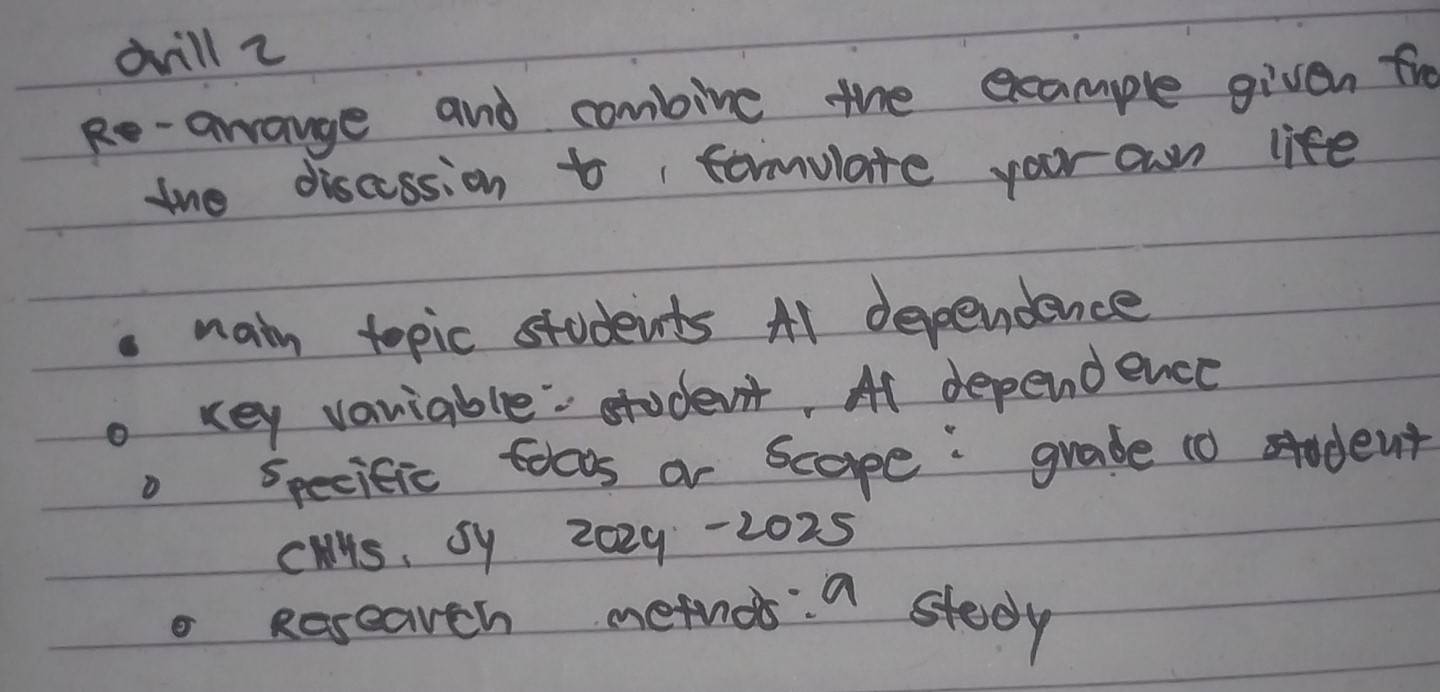 drill 2
Re-arrange and combine the example given fro
the discussion to formulate your own life
• main topic students AI dependence
o Key variable: student, AI dependence
o specific focus or scope: grade 10 student
SY 2024-2025
o Research methods: a study